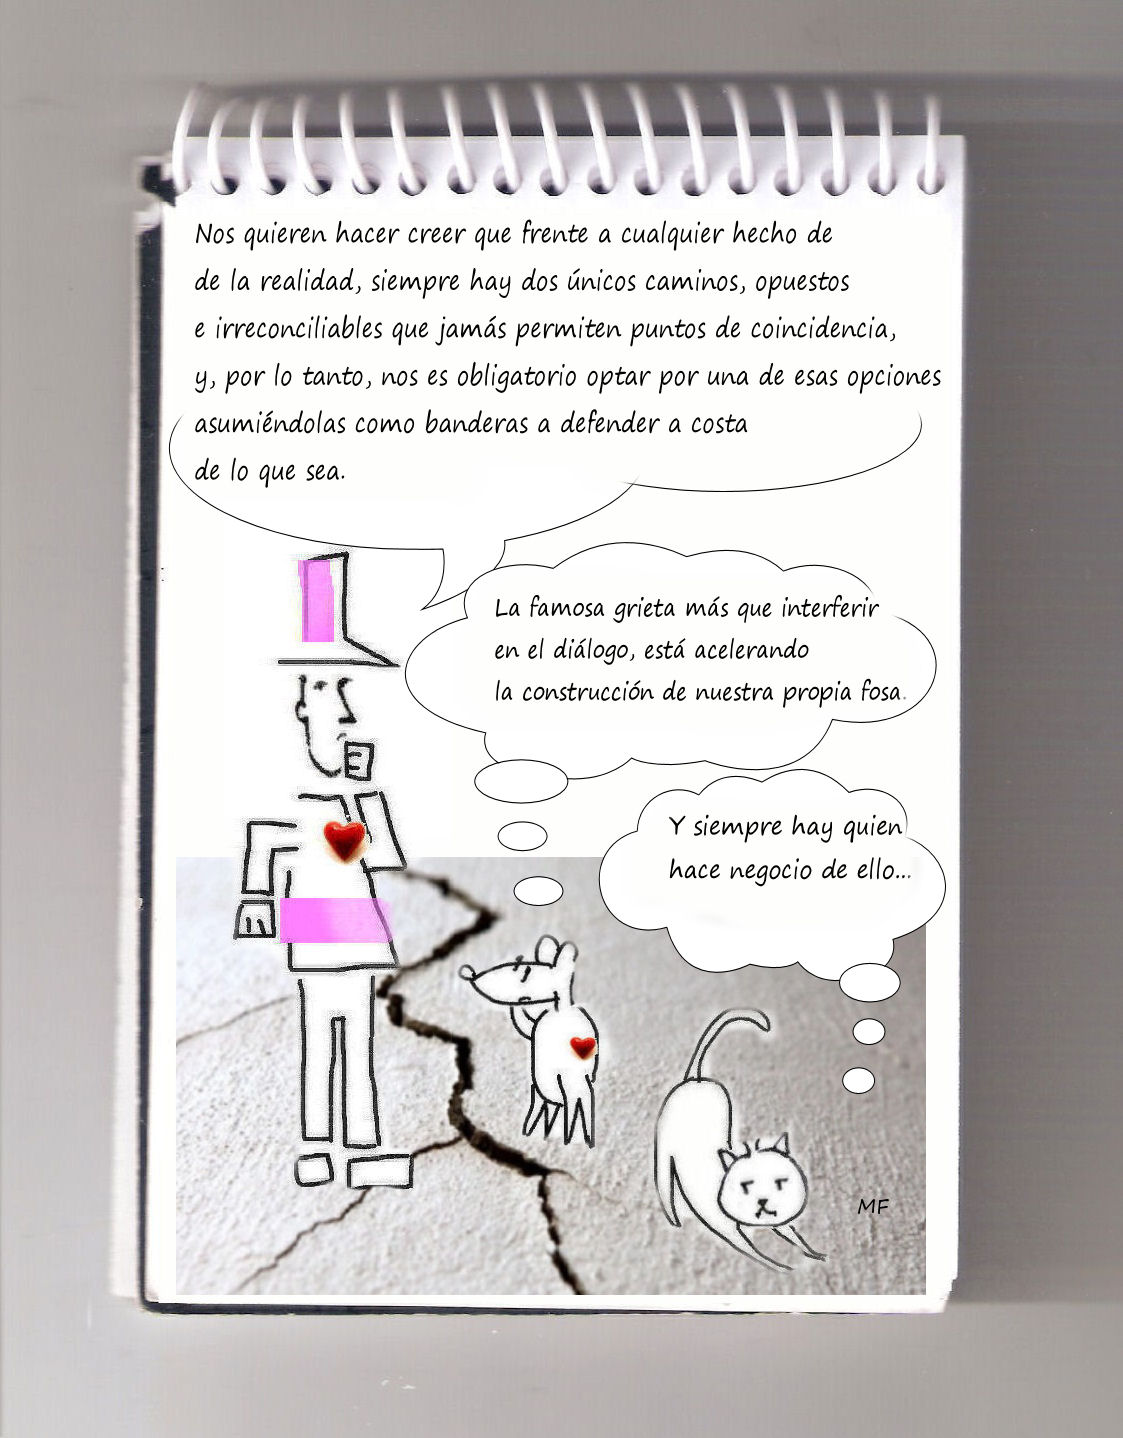 Nos quieren hacer creer que frente a cualquier hecho de
de la realidad, siempre hay dos únicos caminos, opuestos
e irreconciliables que jamás permiten puntos de coincidencia,
y, por lo tanto, nos es obligatorio optar por una de esas opciones
asumiéndolas como banderas a defender a costa
de lo que sea.
La famosa grieta más que interferir
en el diálogo, está acelerando
la construcción de nuestra propia fosa.
Y siempre hay quien
hace negocio de ello...
MF